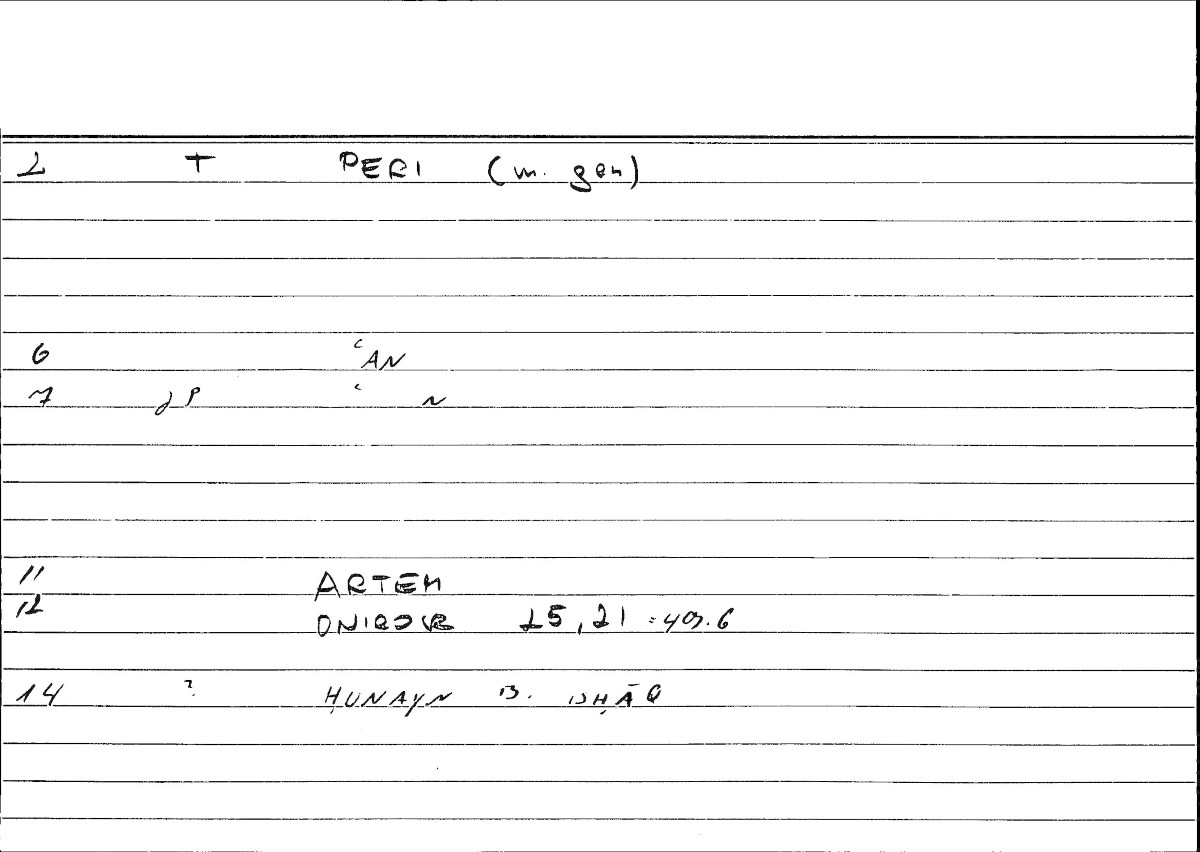 2 T PERI (m. gen)
6 ʿAN
7 gP ʿ N
11 ARTEM
12 ONIROCR 25,21 = 409.6
14 ? ḤUNAYN B. ISḤĀQ